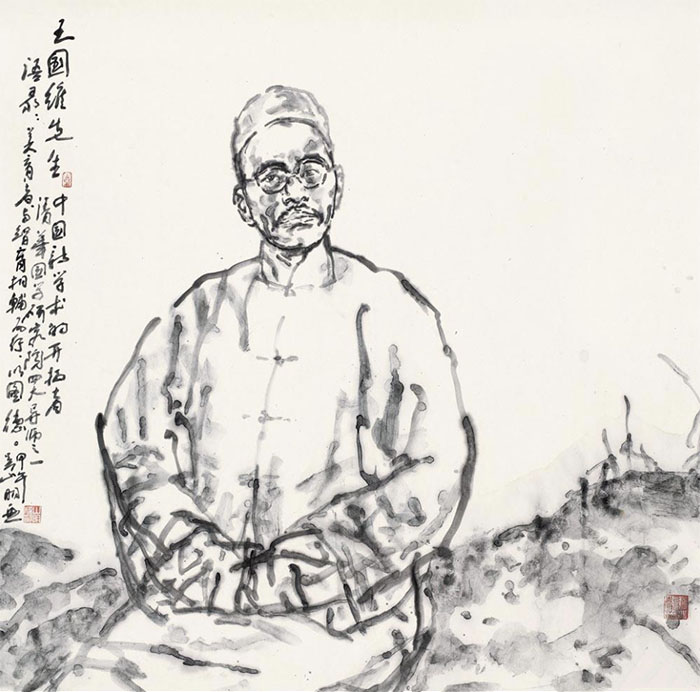 王国维先生
中国新学术的开拓者
清华国学研究院四大导师之一
语录：美育者与智育相辅而行，以图德。甲午